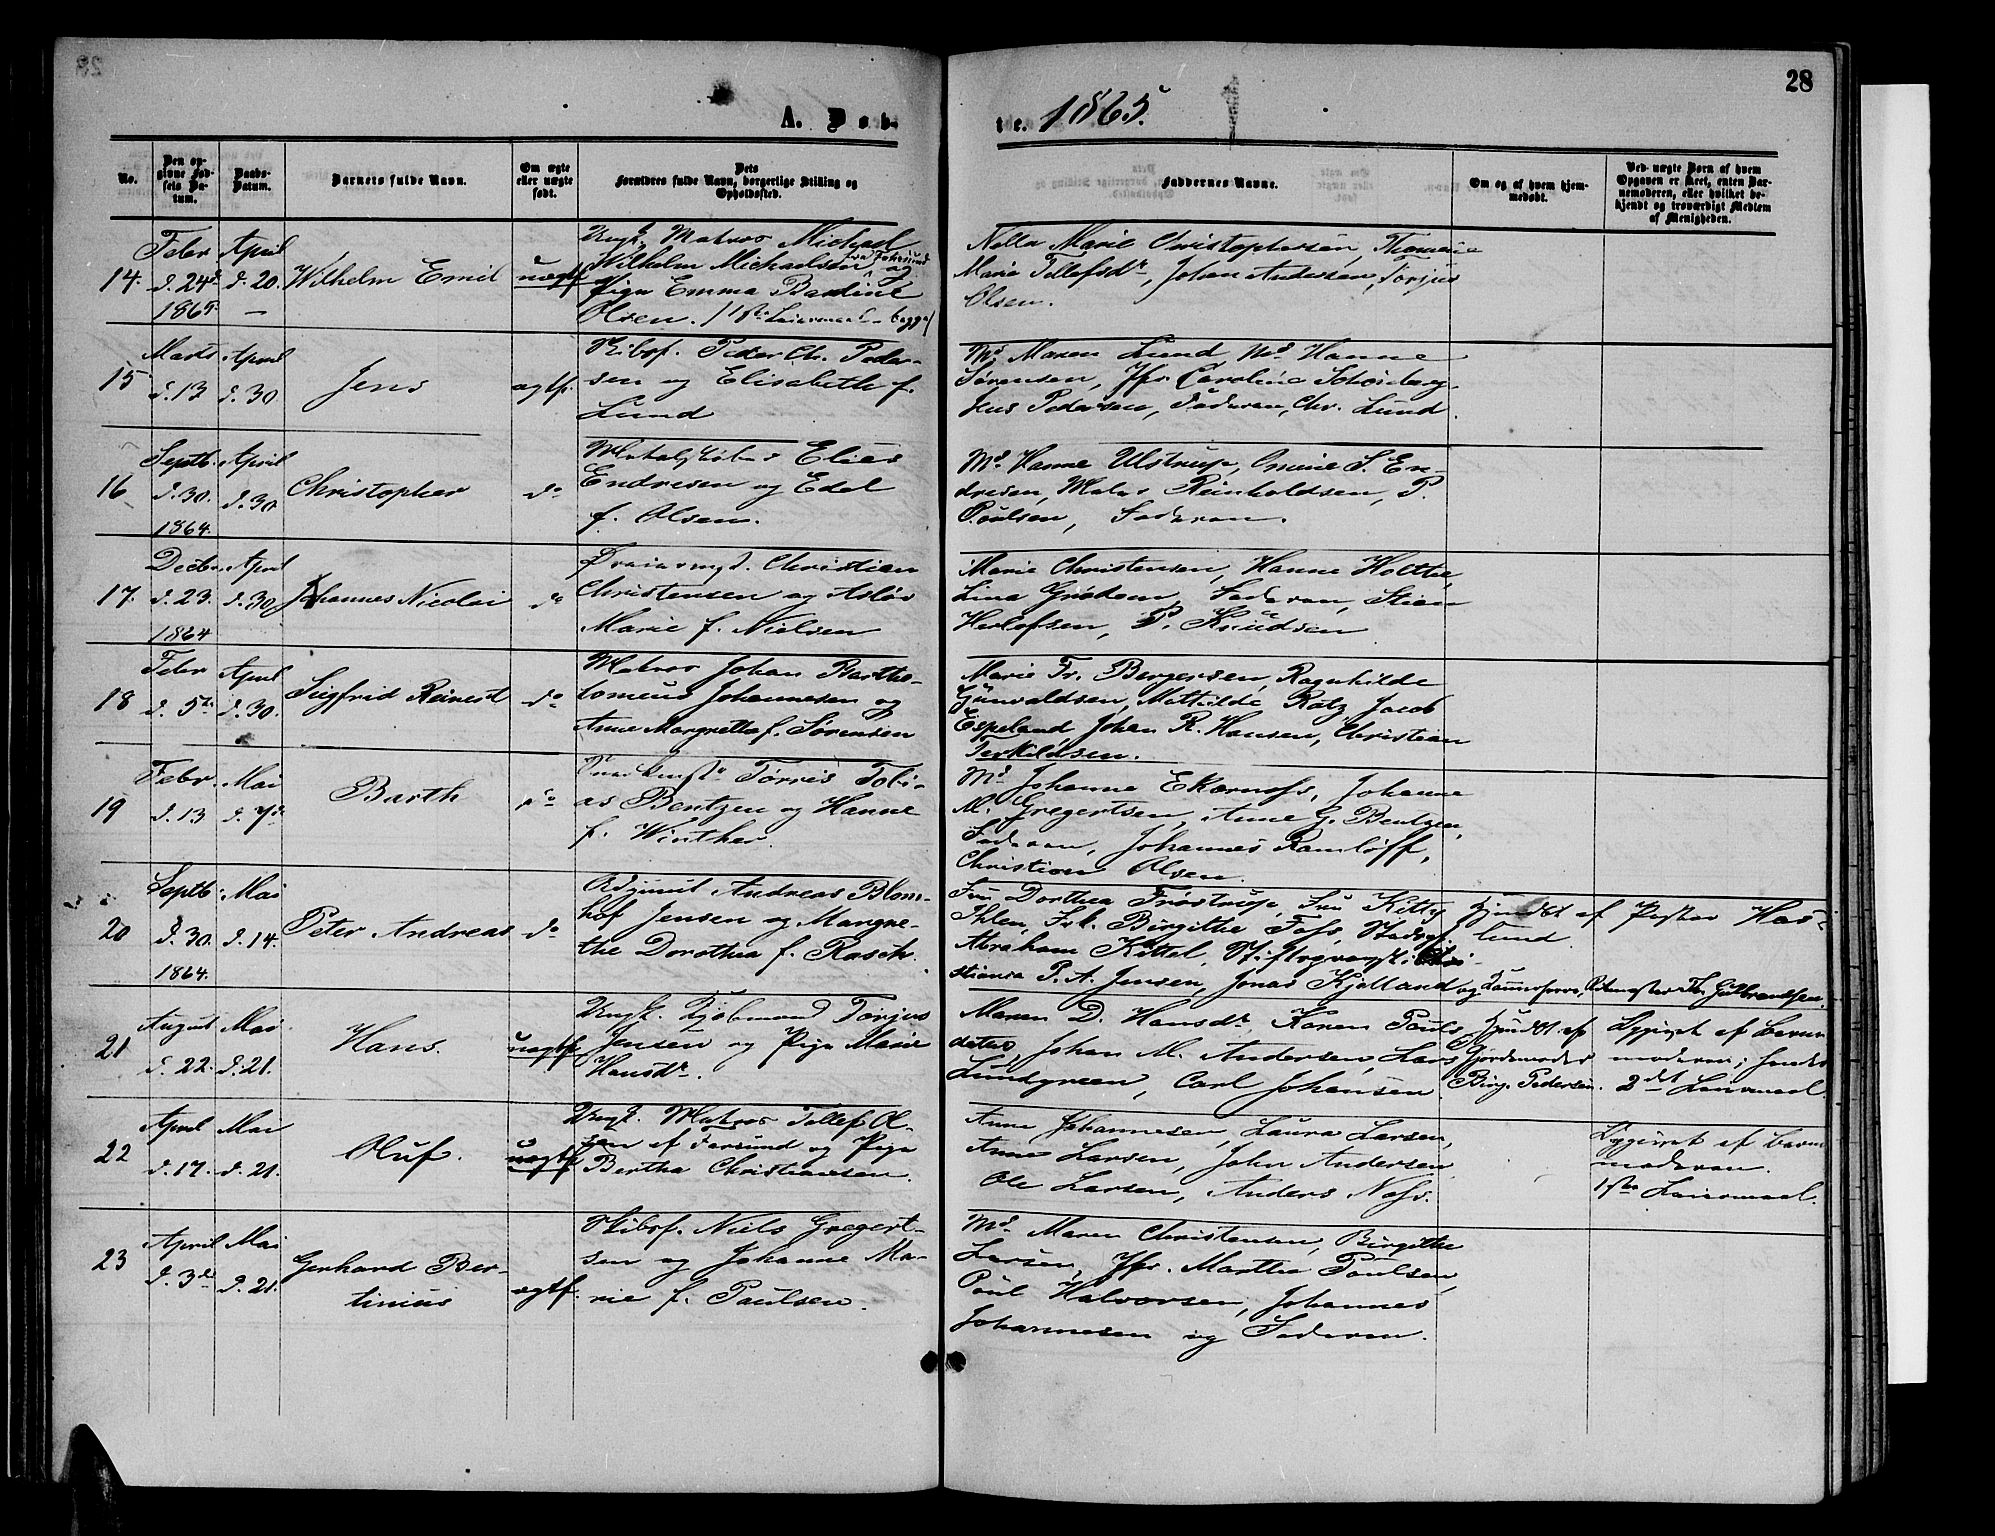 28
A. Døb-
te. 1865.
No.
Den op-
givne Fød-
sels Da-
tum.
Daabs-
Datum.
Barnets fulde Navn.
Om ægte
eller uægte
født.
Dets
Forældres fulde Navn, borgerlige Stilling og
Opholdssted.
Faddernes Navne.
Om og af hvem hjem-
medøbt.
Ved uægte Børn af hvem
Opgaven er skeet, enten Bar-
nemoderen, eller hvilket be-
kjendt og troværdigt Medlem
af Menigheden.
14.
Febr
d. 24de
1865
April
d. 20.
Wilhelm Emil
uægtf
Ungk. Matros Michael
Wilhelm Michaelsen og
Pige Emma Bastine
Olsen. / 1ste Leiermaal - begge /
Nella Marie Christophersen, Thomine
Marie Tellefsdr, Johan Andersen, Torjus
Olsen.
15
Marts
d. 13
April
d. 30
Jens
ægtf.
Skibsf. Peder Chr. Peder-
sen og Elisabeth f.
Lund
Md. Maren Lund, Md. Hanne
Sørensen, Jfr. Caroline
Jens Pedersen, Faderen, Chr. Lund.
16
Septb.
d. 30.
1864.
April
d. 30
Christopher
do
Elias
Endresen og Edel
f. Olsen.
Md. Hanne Ulstrup, S. En-
dresen, Reinholdsen, P.
Poulsen, Faderen.
17.
Decbr.
d. 23.
1864
April
d. 30
Johannes Nicolai
do
Christian
Christensen og Asløv
Marie f. Nielsen
Marie Christensen, Hanne Holthe,
Lina Grødem, Faderen, Stian
Herlofsen, P. Knudsen
18
Febr
d. 5te
April
d. 30.
Sigfrid Reinert
do
Matros Johan Bartho-
lomeus Johannesen og
Anne Margrethe f. Sørensen
Marie Fr. Bergersen, Ragnhilde
Gunvaldsen, Mathilde Ratz, Jacob
Espeland, Johan R. Hansen, Christian
Terkildsen.
19
Febr.
d. 13
Mai
d. 7de
Barth
do
Tørres Tobi-
as Bentzen og Hanne
f. Winther.
Md. Johanne Ekernæss, Johanne
M. Gregertsen, Anne G. Bentzen,
Faderen, Johannes Ramløff,
Christian Olsen.
20
Septb
d. 30.
1864.
Mai
d. 14.
Peter Andreas
do
Adjunct Andreas Blom-
hof Jensen og Margre-
the Dorothea f. Rasch.
Fru Dorthea Frostrup, Fru Kitty
Ihlen, Frk. Birgithe Foss,
Abraham Kittel, Stiftsprovst i Chri-
stiania P. A. Jensen, Jonas Kjelland og
Hjemdøbt af Pastor Has-
lund.
21
August
d. 22.
Mai
d. 21.
Hans.
uægtf
Ungk. Kjøbmand Torjus
Jensen og Pige Marie
Hansdr.
Maren D. Hansdr, Karen Pauls
datter, Johan M. Andersen, Lars
Lundgreen, Carl Johansen
Hjemdøbt af
Gjordemoder
Birg. Pedersen.
Opgivet af Barne
moderen; hendes
2det Leiermaal.
22
April
d. 17.
Mai
d. 21.
Oluf.
uægtf
Ungk. Matros Tellef O-
sen af Farsund og Pige
Bertha Christiansen.
Anne Johannesen, Laura Larsen,
Anne Larsen, John Andersen
Ole Larsen, Anders Næss.
Opgivet af Barne
moderen.
1ste Leiermaal.
23
April
d. 3de
Mai
d. 21.
Gerhard Ber-
tinius
ægtf.
Skibsf. Niels Gregert-
sen og Johanne Ma-
rie f. Paulsen.
Md. Maren Christensen, Birgithe
Larsen, Jfr. Marthe Paulsen,
Poul Halvorsen, Johannes
Johannesen og Faderen.